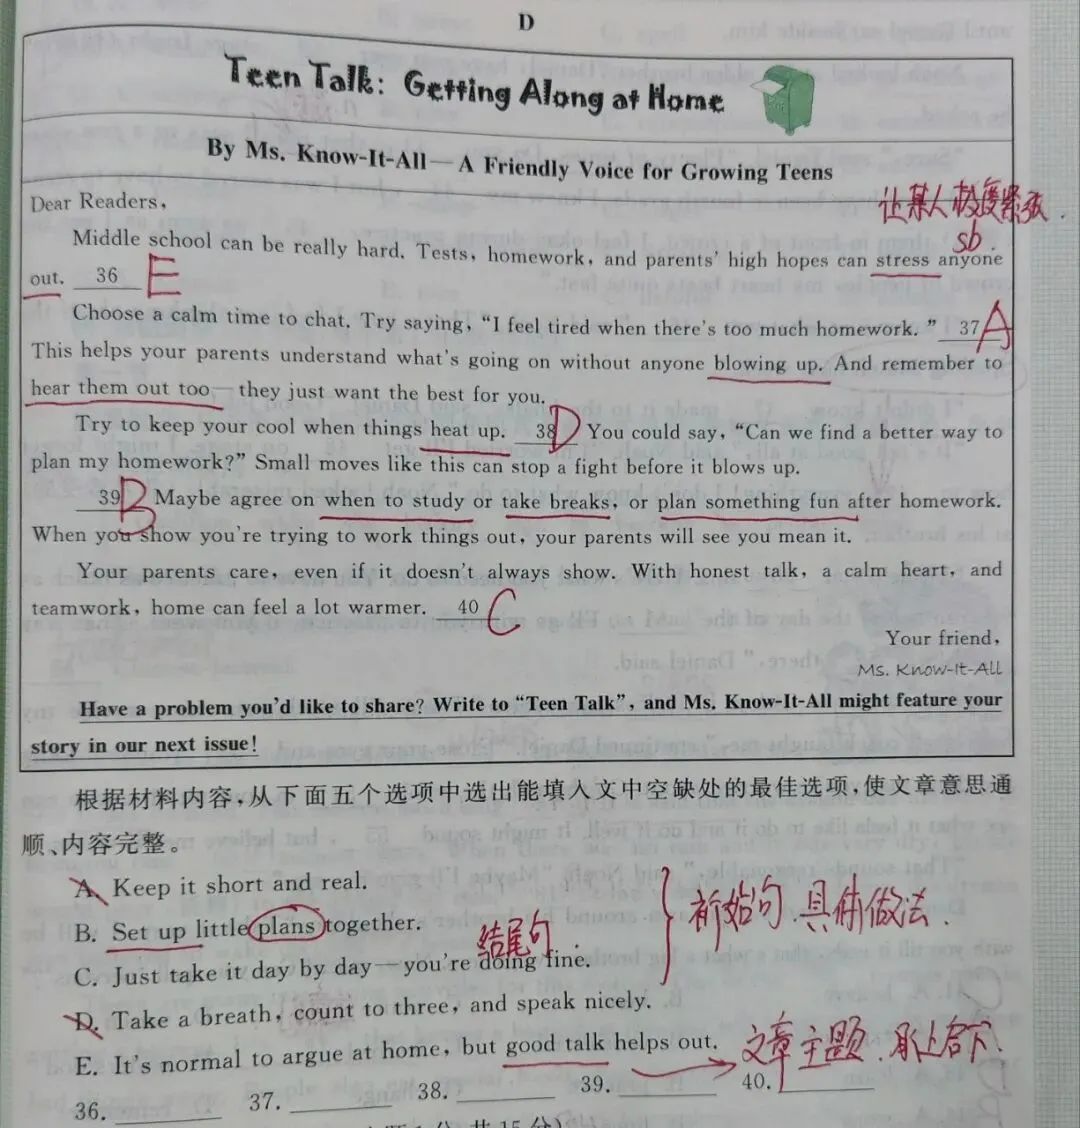 D
Teen Talk: Getting Along at Home
By Ms. Know-It-All— A Friendly Voice for Growing Teens
Dear Readers,
让某人极度紧张.
sb.
Middle school can be really hard. Tests, homework, and parents' high hopes can stress anyone
out. 36 E
Choose a calm time to chat. Try saying, “I feel tired when there's too much homework.” 37 A
This helps your parents understand what's going on without anyone blowing up. And remember to
hear them out too— they just want the best for you.
Try to keep your cool when things heat up. 38 D You could say, “Can we find a better way to
plan my homework?” Small moves like this can stop a fight before it blows up.
39 B Maybe agree on when to study or take breaks, or plan something fun after homework.
When you show you're trying to work things out, your parents will see you mean it.
Your parents care, even if it doesn't always show. With honest talk, a calm heart, and
teamwork, home can feel a lot warmer. 40 C
Your friend,
Ms. Know-It-All
Have a problem you'd like to share? Write to “Teen Talk”, and Ms. Know-It-All might feature your
story in our next issue!
根据材料内容,从下面五个选项中选出能填入文中空缺处的最佳选项,使文章意思通
顺、内容完整。
A. Keep it short and real.
B. Set up little plans together.
祈始句.具体做法.
结尾句.
C. Just take it day by day—you're doing fine.
D. Take a breath, count to three, and speak nicely.
E. It's normal to argue at home, but good talk helps out. 文章主题.承上启下.
36. 37. 38. 39. 40.